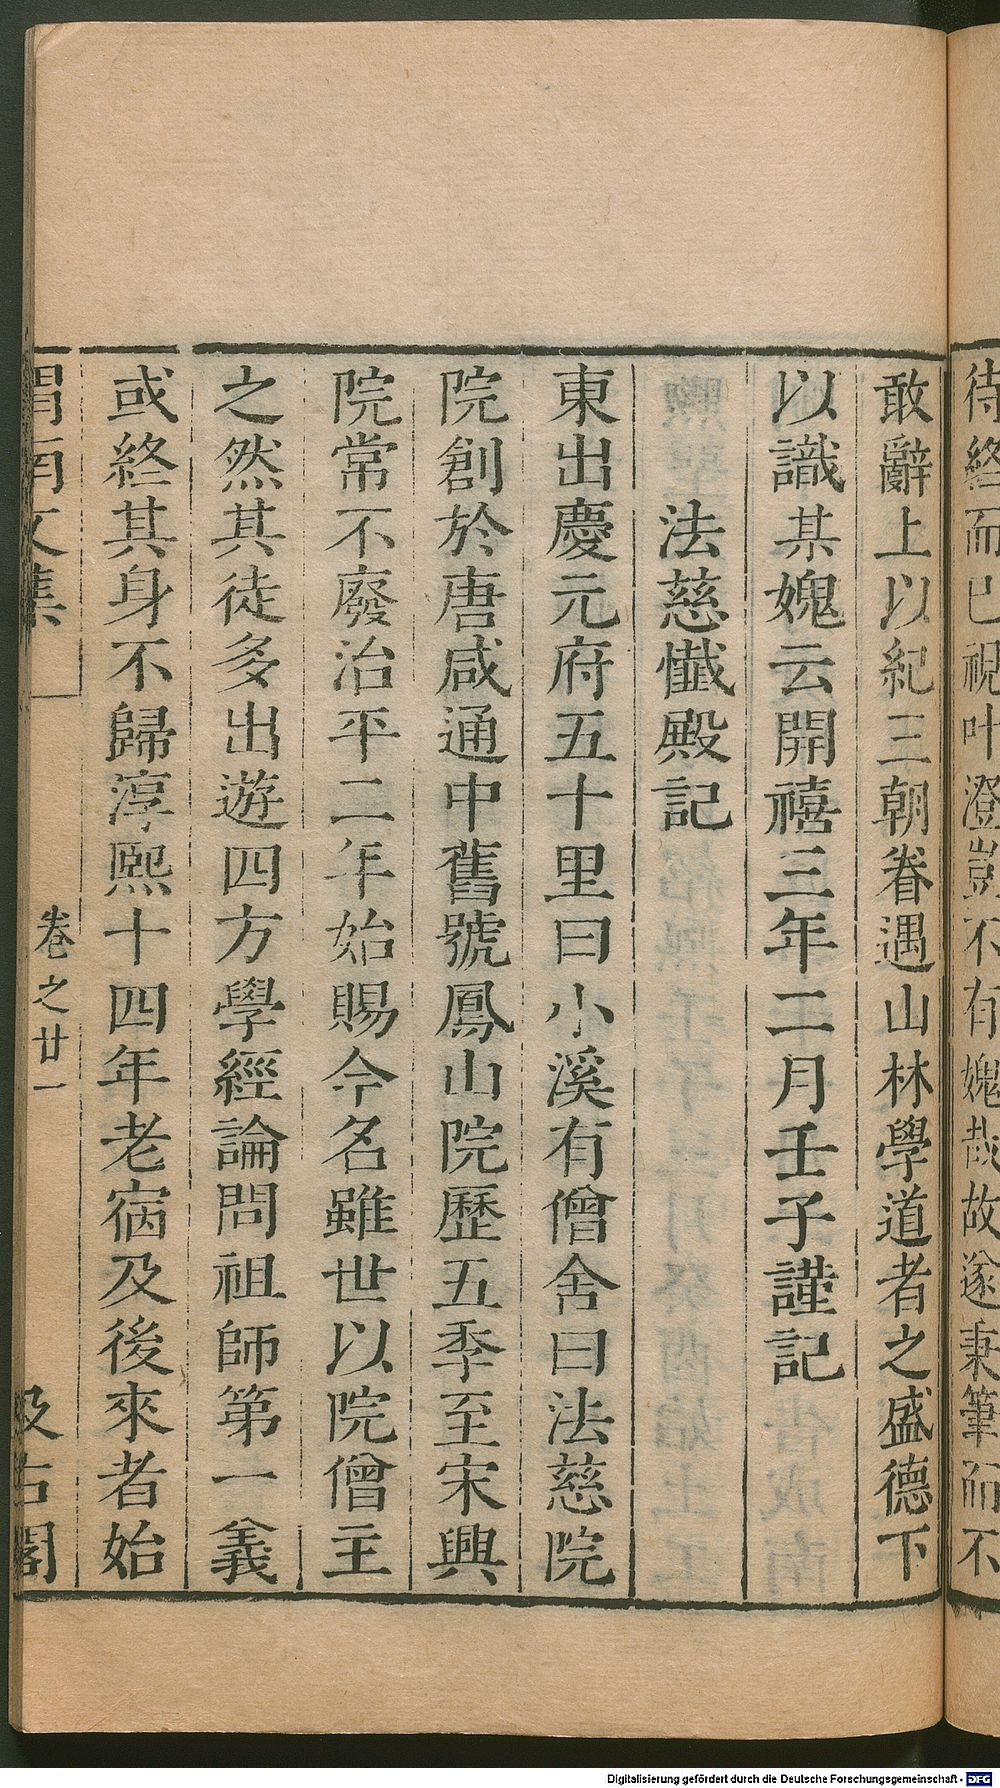 待終而已視叶澄豈不有媿哉故遂秉筆而不
敢辭上以紀三朝眷遇山林學道者之盛德下
以識某媿云開禧三年二月壬子謹記
法慈懺殿記
東出慶元府五十里曰小溪有僧舍曰法慈院
院創於唐咸通中舊號鳳山院歷五季至宋興
院常不廢治平二年始賜今名雖世以院僧主
之然其徒多出遊四方學經論問祖師第一義
或終其身不歸淳熙十四年老宿及後來者始
渭南文集 卷之廿一 汲古閣
Digitalisierung gefördert durch die Deutsche Forschungsgemeinschaft - DFG